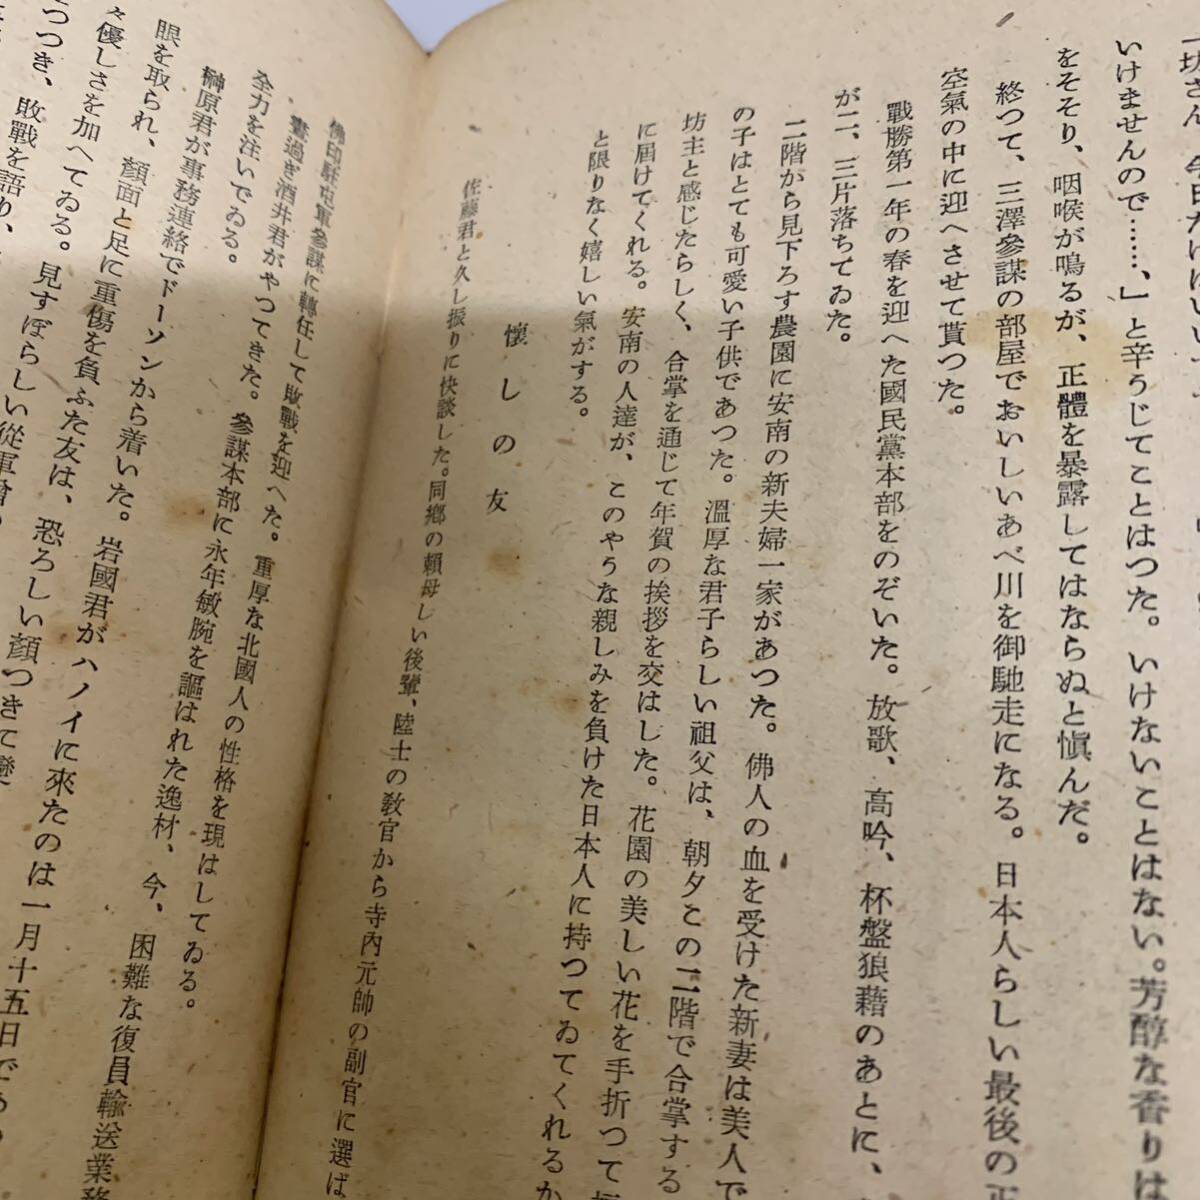 一坊さん、今日だけは
いけませんので……、」と辛うじてことはつた。いけないことはない。芳醇な香りは
をそそり、咽喉が鳴るが、正體を暴露してはならぬと愼んだ。
終つて、三澤參謀の部屋でおいしいあべ川を御馳走になる。日本人らしい最後の正
空氣の中に迎へさせて貰つた。
戰勝第一年の春を迎へた國民黨本部をのぞいた。放歌、高吟、杯盤狼藉のあとに、
が二、三片落ちてゐた。
二階から見下ろす農園に安南の新夫婦一家があつた。佛人の血を受けた新妻は美人で
の子はとても可愛い子供であつた。溫厚な君子らしい祖父は、朝夕この二階で合掌する
坊主と感じたらしく、合掌を通じて年賀の挨拶を交はした。花園の美しい花を手折つて
に屆けてくれる。安南の人達が、このやうな親しみを負けた日本人に持つてゐてくれるか
と限りなく嬉しい氣がする。
懷しの友
佐藤君と久し振りに快談した。同鄕の賴母しい後輩、陸士の敎官から寺內元帥の副官に選ば
佛印駐屯軍參謀に轉任して敗戰を迎へた。重厚な北國人の性格を現はしてゐる。
晝過ぎ酒井君がやつてきた。參謀本部に永年敏腕を謳はれた逸材、今、困難な復員輸送業務
全力を注いでゐる。
榊原君が事務連絡でドーソンから着いた。岩國君がハノイに來たのは一月十五日であつ
眼を取られ、顏面と足に重傷を負ふた友は、恐ろしい顏つきて
優しさを加へてゐる。見すぼらしい從軍
つつき、敗戰を語り、